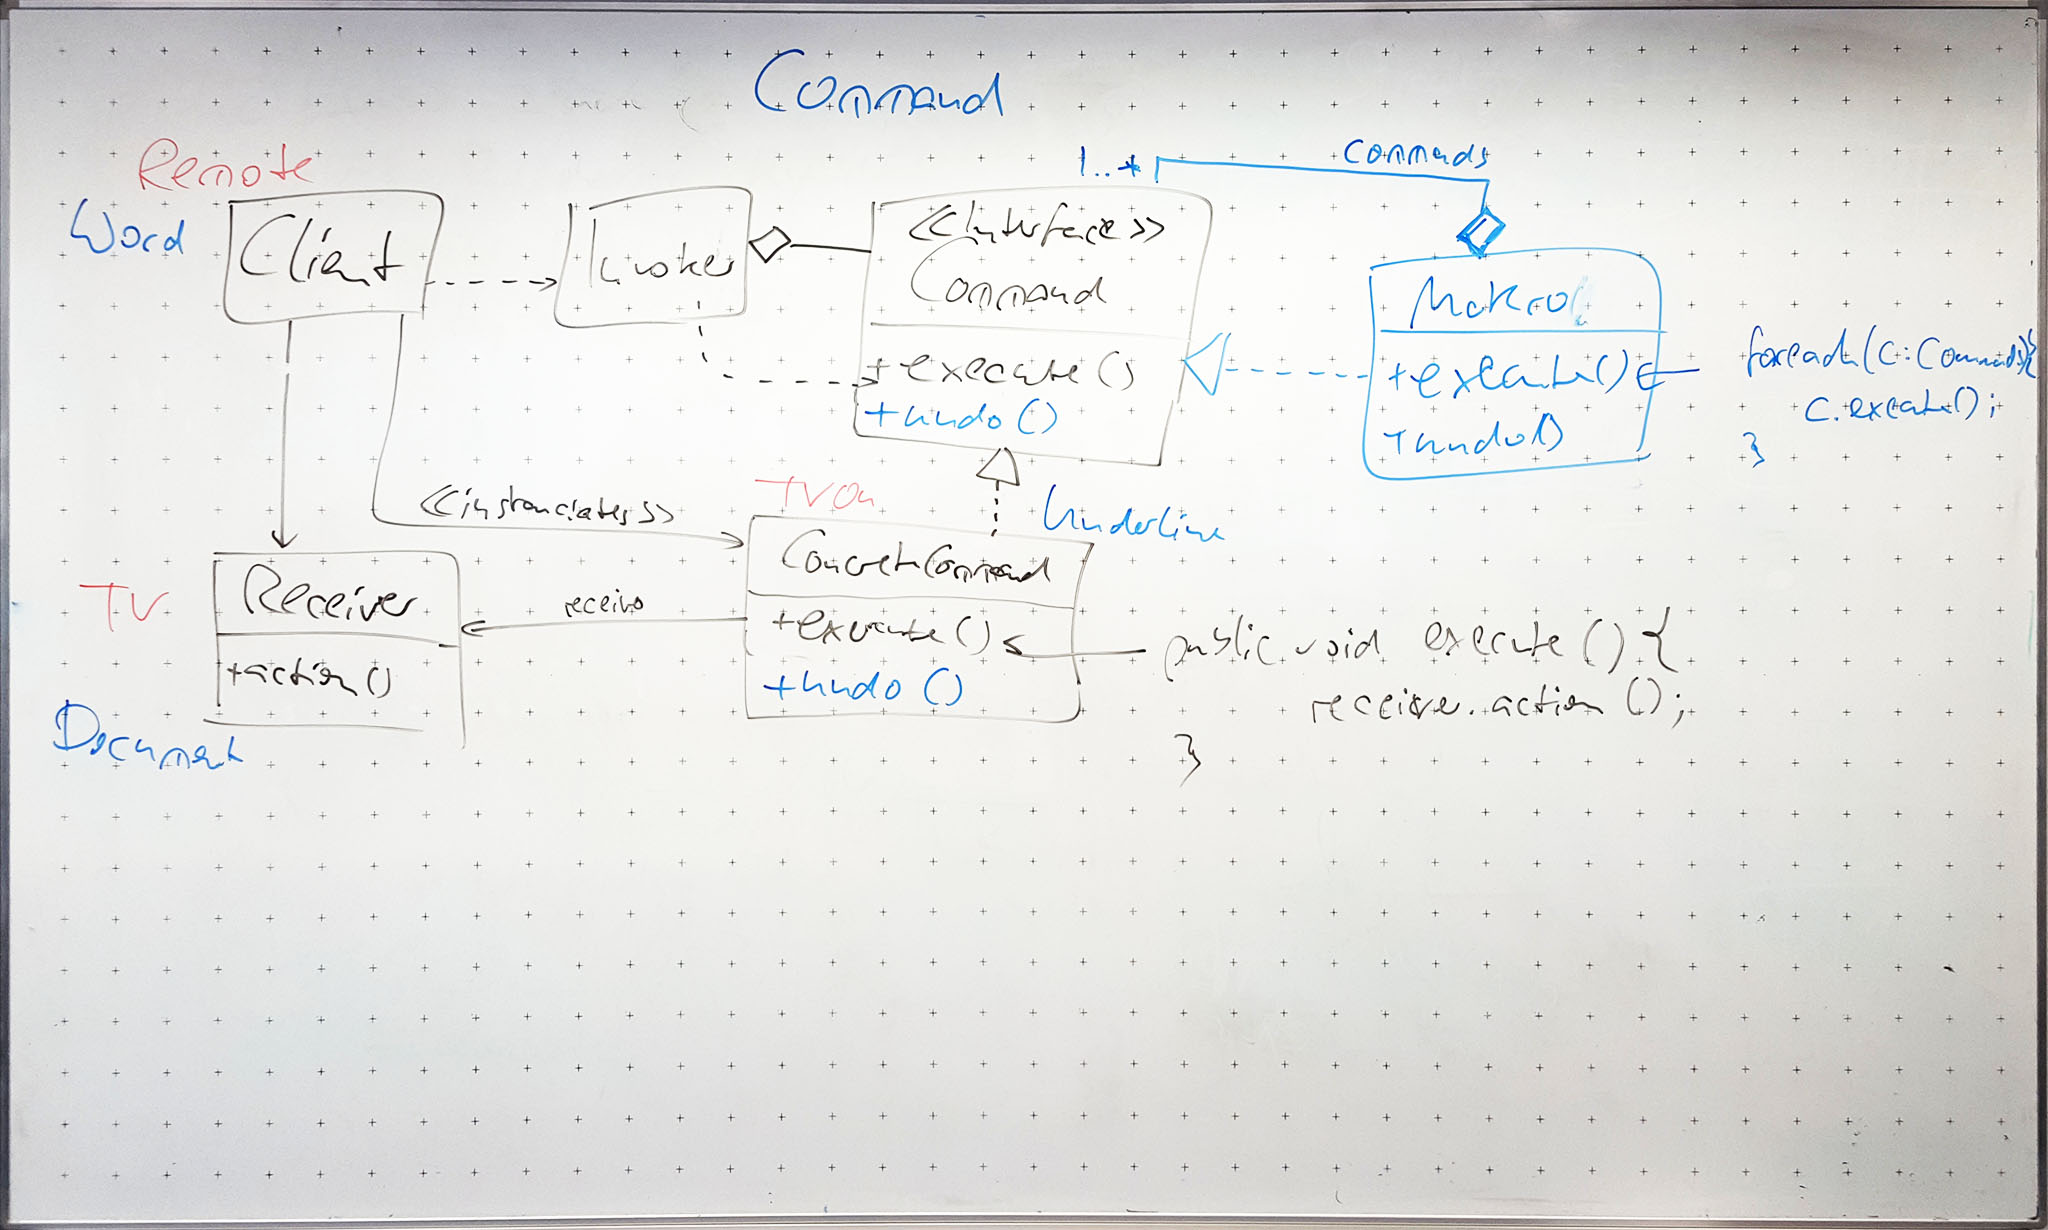 Command
Remote
Word
Client
Invoker
<<Interface>>
Command
+execute()
+undo()
1..*
commads
Makro
+execute()
+undo()
foreach(c:Commads){
c.execute();
}
<<instanciates>>
TV On
Underline
ConcreteCommand
+execute()
+undo()
public void execute() {
receiver.action();
}
receiver
TV
Receiver
+action()
Document